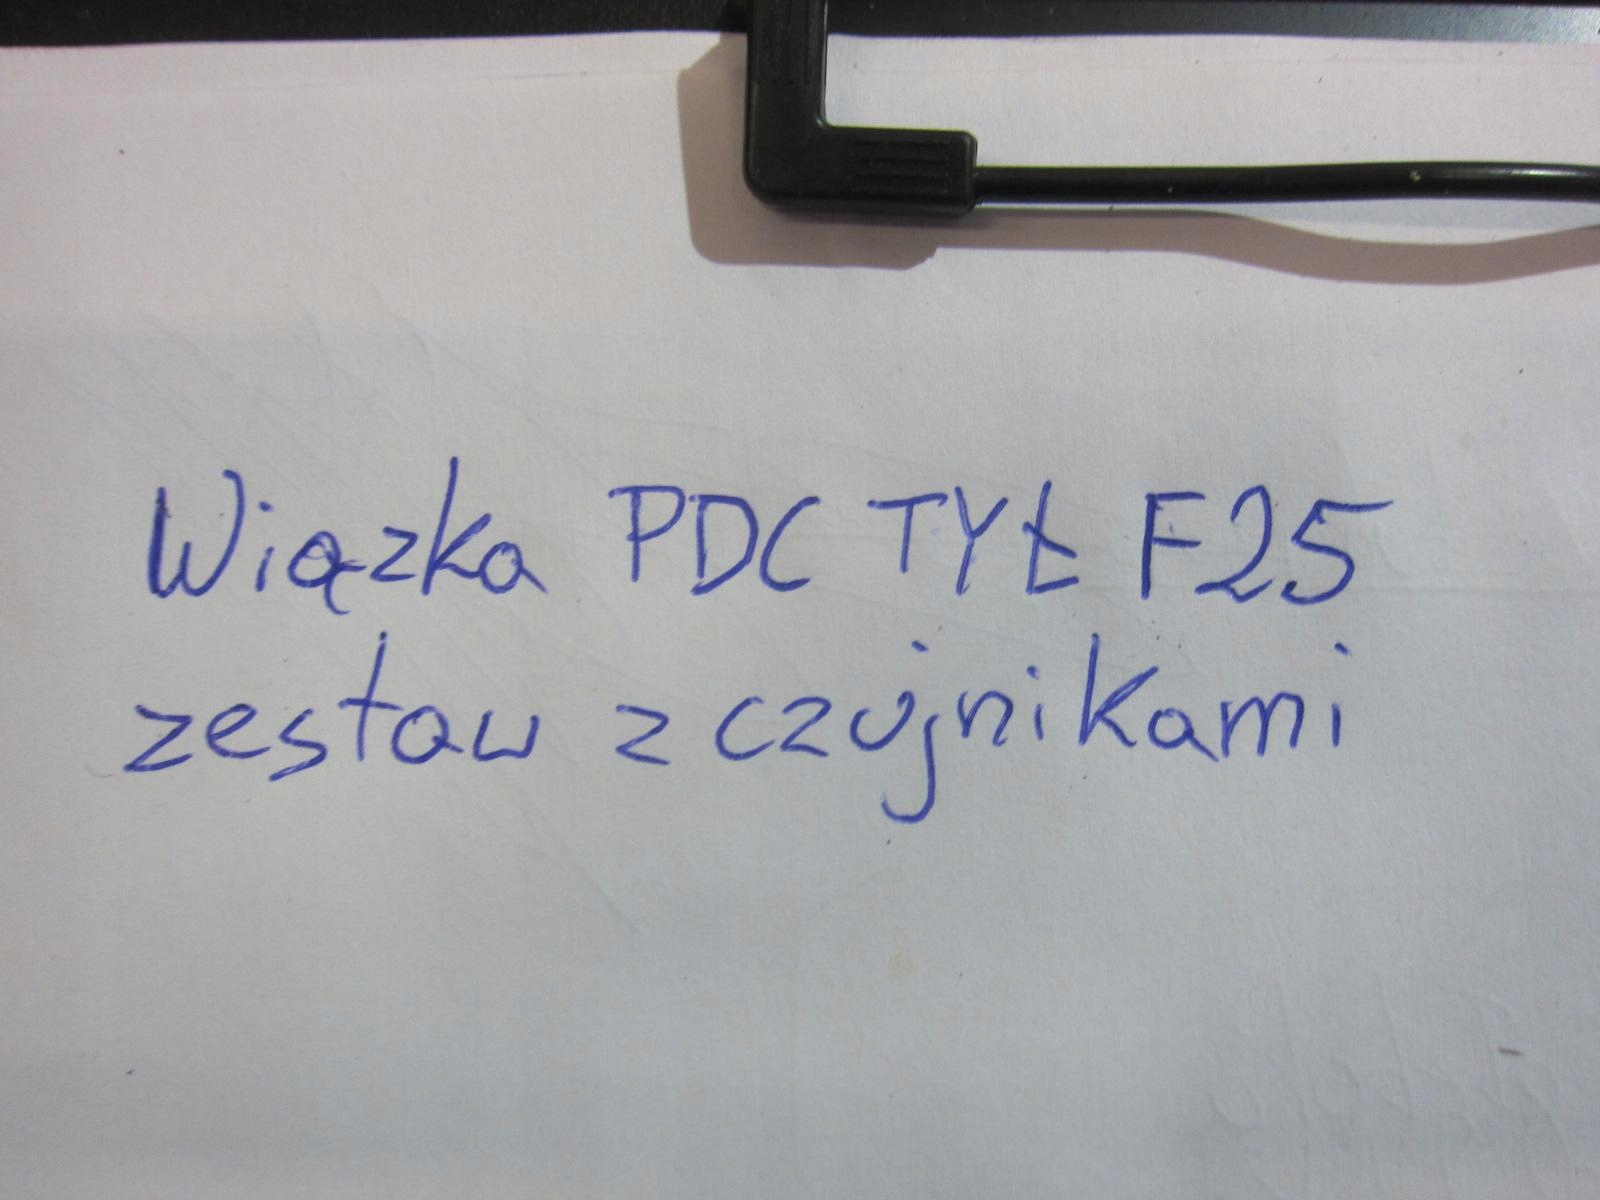 Wiązka PDC TYŁ F25
zestaw z czujnikami